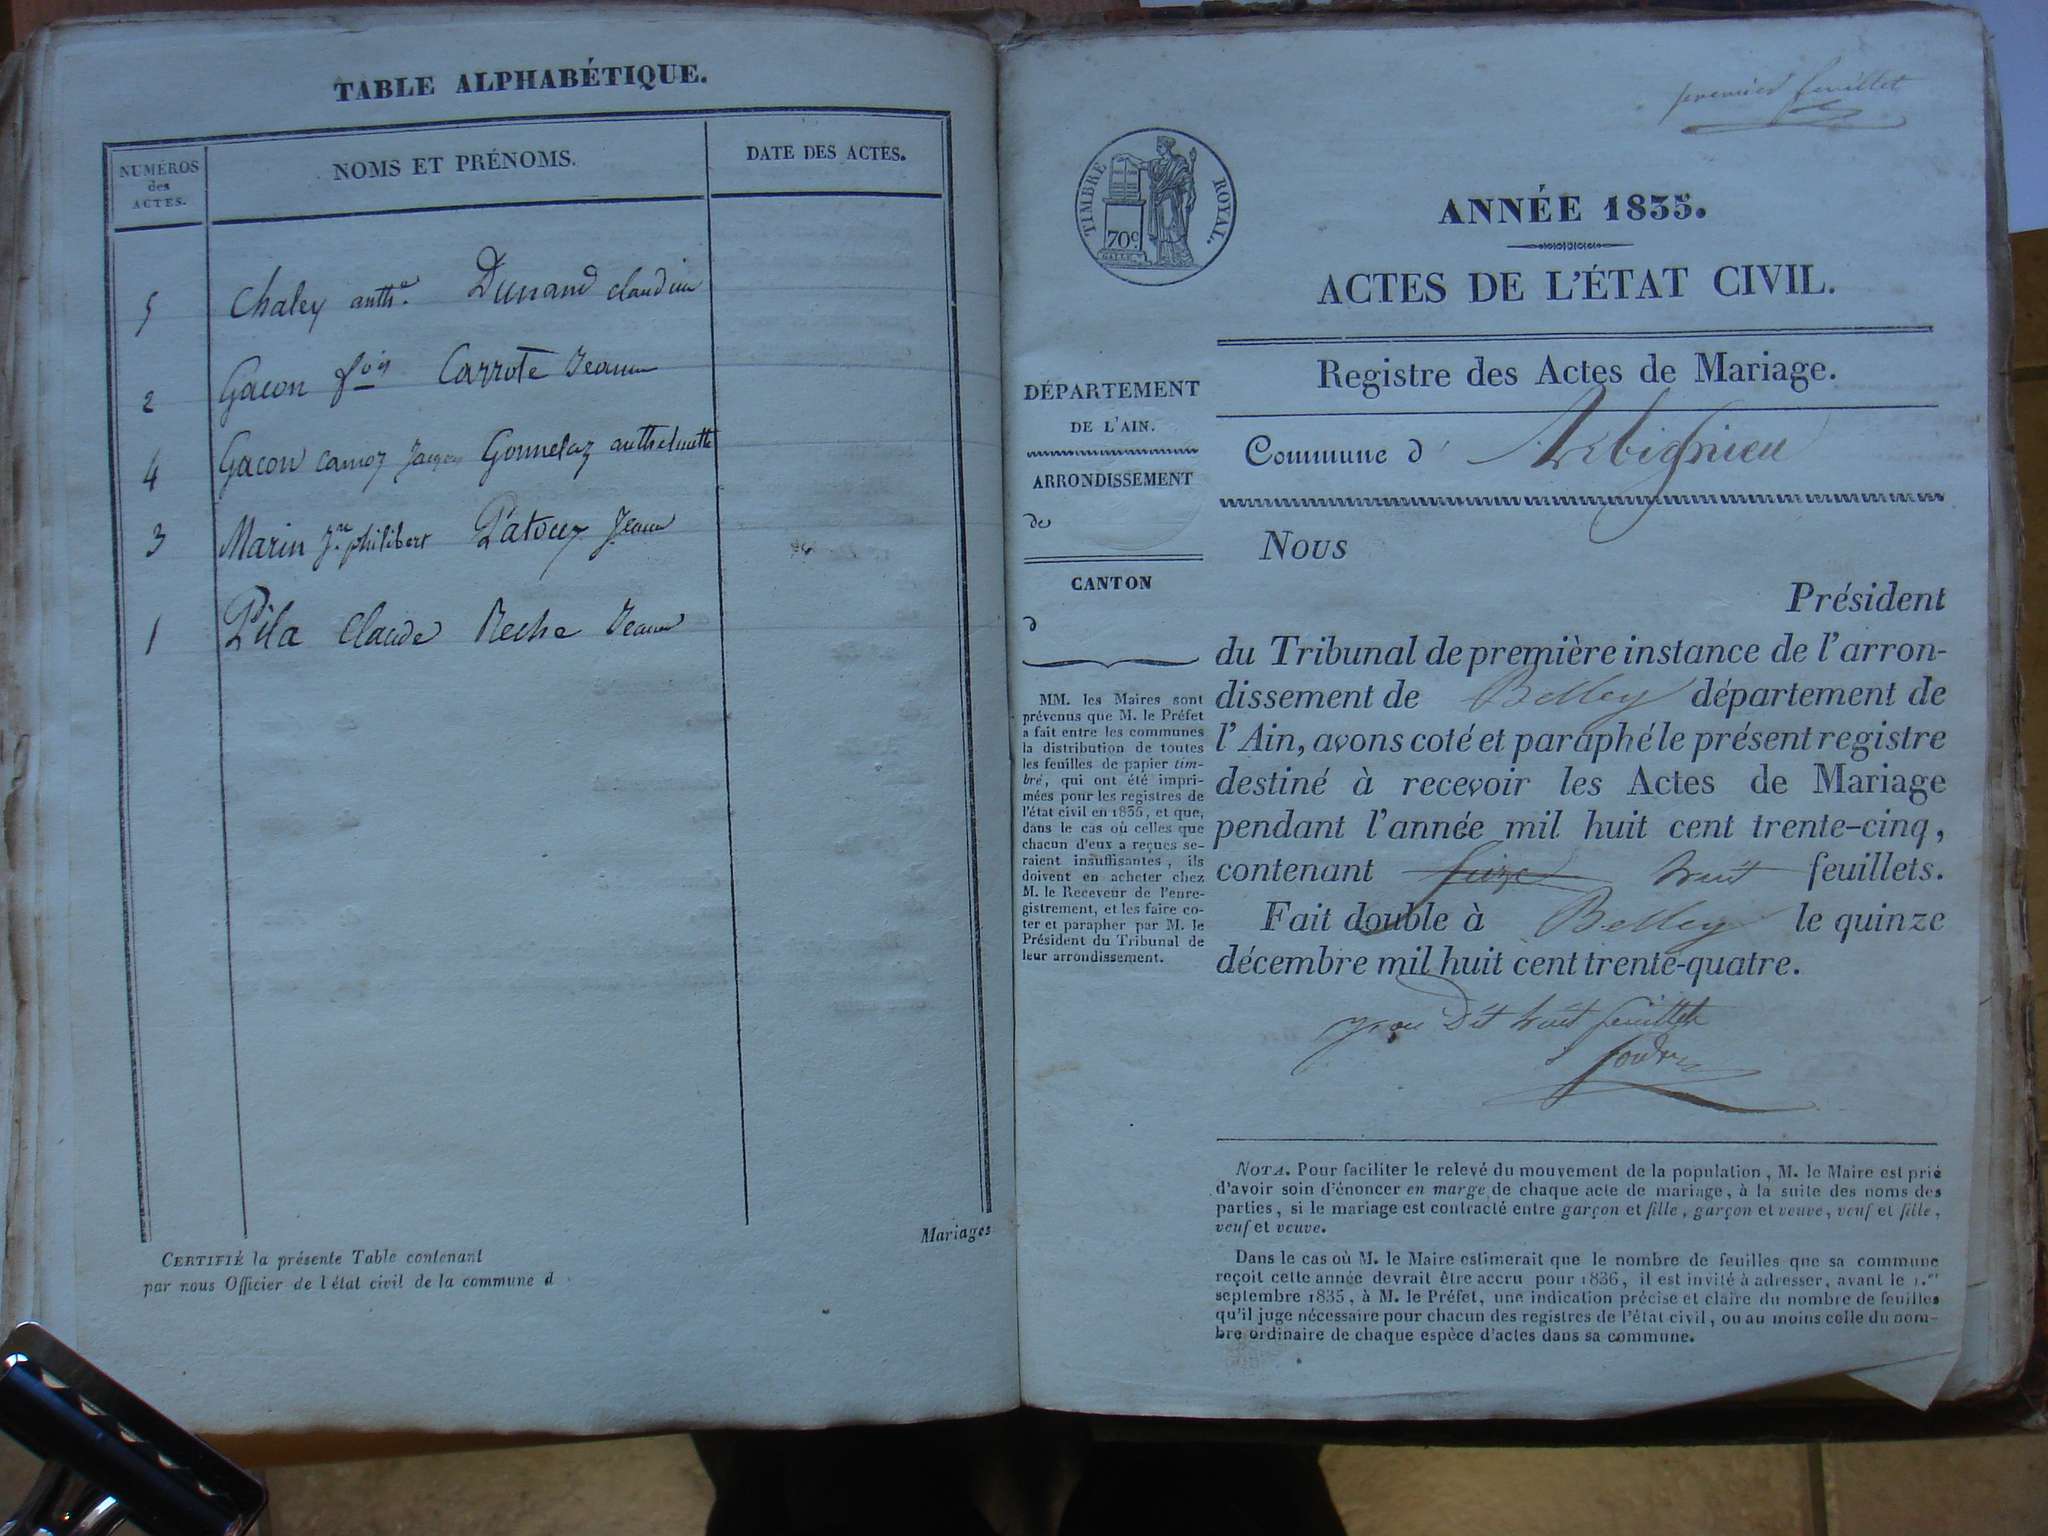 TABLE ALPHABÉTIQUE.
NUMÉROS
des
ACTES.
NOMS ET PRÉNOMS.
DATE DES ACTES.
5 Chaley anthe. Dunand claudine
2 Gacon fois Carrote Jeanne
4 Gacon camoz Jacques Gonnelaz anthelmette
3 Marin Jn philibert Patouez Jeanne
1 Pila Claude Reche Jeanne
Mariages
CERTIFIÉ la présente Table contenant
par nous Officier de l'état civil de la commune d
premier feuillet
TIMBRE ROYAL.
70c
ANNÉE 1835.
ACTES DE L'ÉTAT CIVIL.
Registre des Actes de Mariage.
Commune d' Arbignieu
DÉPARTEMENT
DE L'AIN.
ARRONDISSEMENT
de
CANTON
d
MM. les Maires sont
prévenus que M. le Préfet
a fait entre les communes
la distribution de toutes
les feuilles de papier tim-
bré, qui ont été impri-
mées pour les registres de
l'état civil en 1835, et que,
dans le cas où celles que
chacun d'eux a reçues se-
raient insuffisantes, ils
doivent en acheter chez
M. le Receveur de l'enre-
gistrement, et les faire co-
ter et parapher par M. le
Président du Tribunal de
leur arrondissement.
Nous
Président
du Tribunal de première instance de l'arron-
dissement de Belley département de
l'Ain, avons coté et paraphé le présent registre
destiné à recevoir les Actes de Mariage
pendant l'année mil huit cent trente-cinq,
contenant huit feuillets.
Fait double à Belley le quinze
décembre mil huit cent trente-quatre.
Dit huit feuillets
NOTA. Pour faciliter le relevé du mouvement de la population, M. le Maire est prié
d'avoir soin d'énoncer en marge de chaque acte de mariage, à la suite des noms des
parties, si le mariage est contracté entre garçon et fille, garçon et veuve, veuf et fille,
veuf et veuve.
Dans le cas où M. le Maire estimerait que le nombre de feuilles que sa commune
reçoit cette année devrait être accru pour 1836, il est invité à adresser, avant le 1.er
septembre 1835, à M. le Préfet, une indication précise et claire du nombre de feuilles
qu'il juge nécessaire pour chacun des registres de l'état civil, ou au moins celle du nom-
bre ordinaire de chaque espèce d'actes dans sa commune.